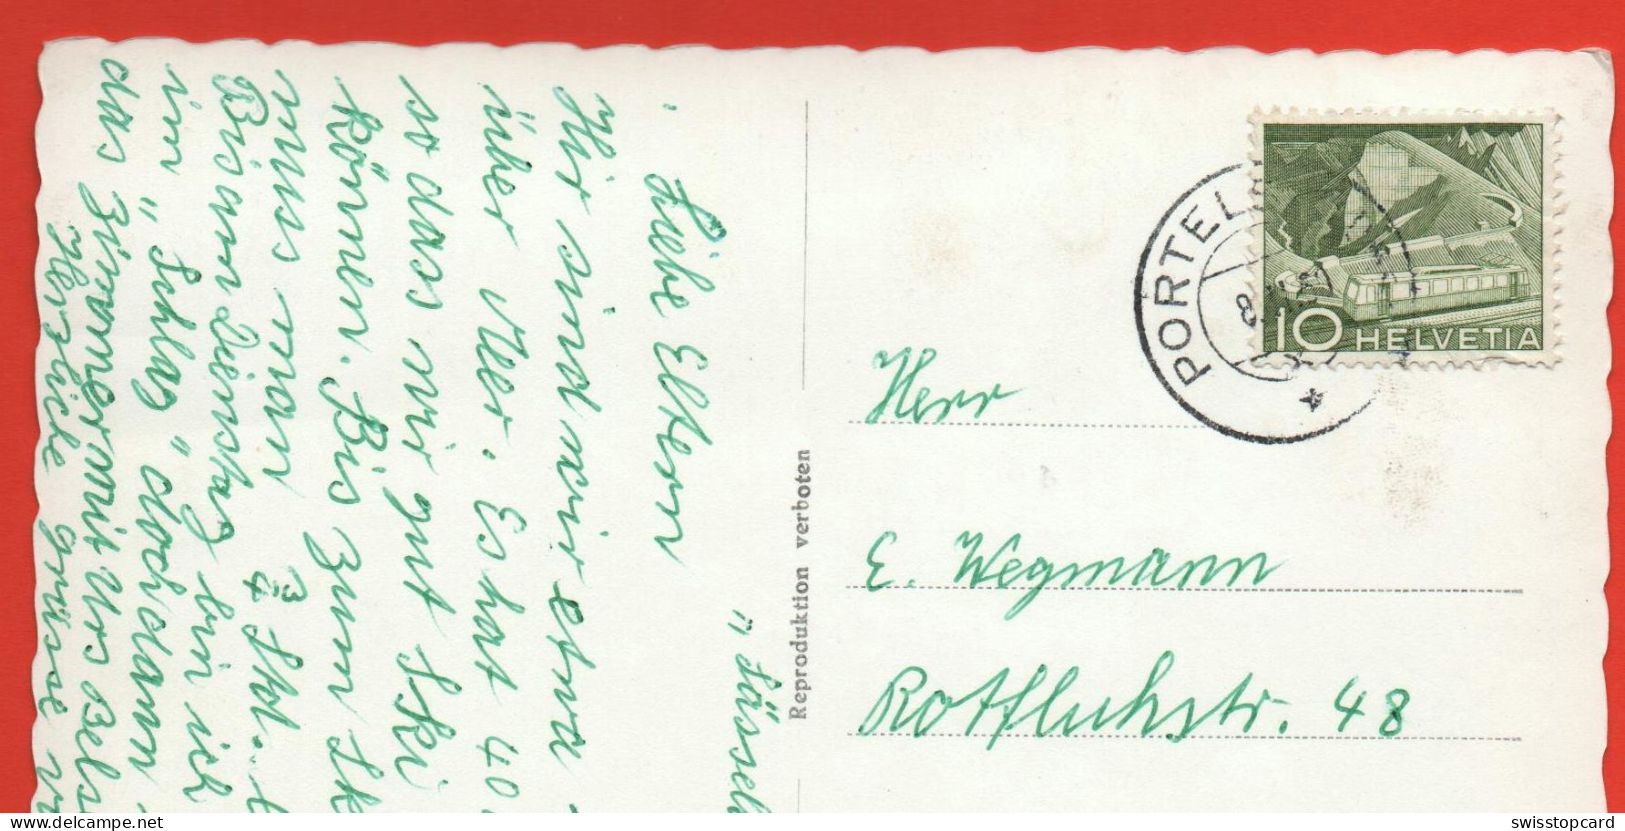 " Fässel
Liebe Eltern
Hir sind wir etwa
über Meer. Es hat 40
so das wir gut Ski
können. Bis zum Sk
muss man 3/4 Std.
Bis am Dienstag bin ich
im "Schlag" doch dann
das Zimmer mit Urs Bels
Herzliche Grüsse
Reproduktion verboten
PORTELS
8.
10 HELVETIA
Herr
E. Wegmann
Rotfluhstr. 48
www.delcampe.net
swisstopcard